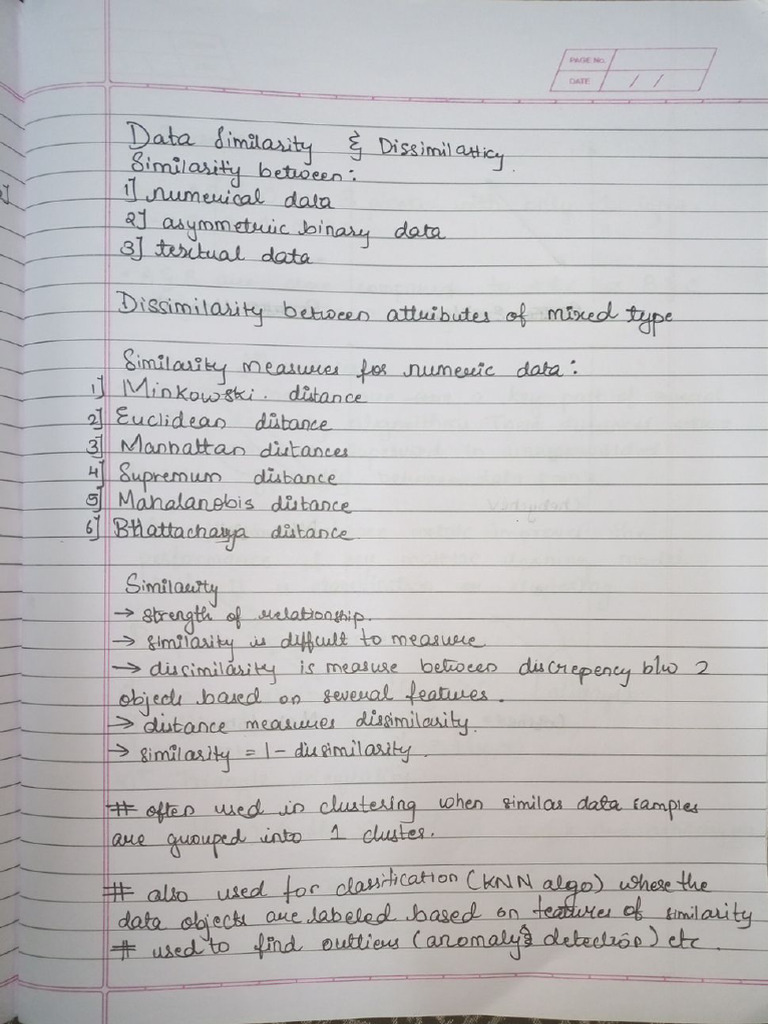 PAGE No.
DATE / /
Data Similarity & Dissimilarticy
Similarity between:
1] numerical data
2] asymmetric binary data
3] textual data
Dissimilarity between attributes of mixed type
Similarity measures for numeric data:
1] Minkowski. distance
2] Euclidean distance
3] Manhattan distances
4] Supremum distance
5] Mahalanobis distance
6] Bhattacharya distance
Similarity
→ strength of relationship.
→ similarity is difficult to measure
→ dissimilarity is measure between discrepency b/w 2
objects based on several features.
→ distance measures dissimilarity.
→ similarity = 1 - dissimilarity.
# often used in clustering when similar data samples
are grouped into 1 cluster.
# also used for classification (KNN algo) where the
data objects are labeled based on features of similarity
# used to find outliers (anomaly detection) etc.